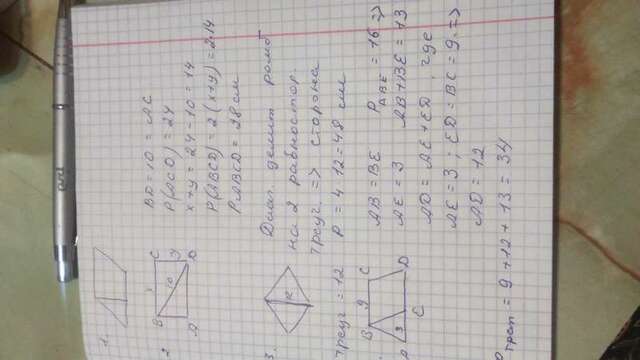 1.
2
B
C
x
10
y
A
D
BD = 10 = AC
P(ACD) = 24
x + y = 24 - 10 = 14
P(ABCD) = 2(x+y) = 2·14
P ABCD = 28 см
3.
12
Диаг. делит ромб
на 2 равностор.
треуг. => сторона
треуг = 12
P = 4·12 = 48 см
B
9
C
A
3
E
D
AB = BE
P ABE = 16 =>
AE = 3
AB + BE = 13
AD = AE + ED, где
AE = 3; ED = BC = 9. =>
AD = 12
P трап = 9 + 12 + 13 = 34